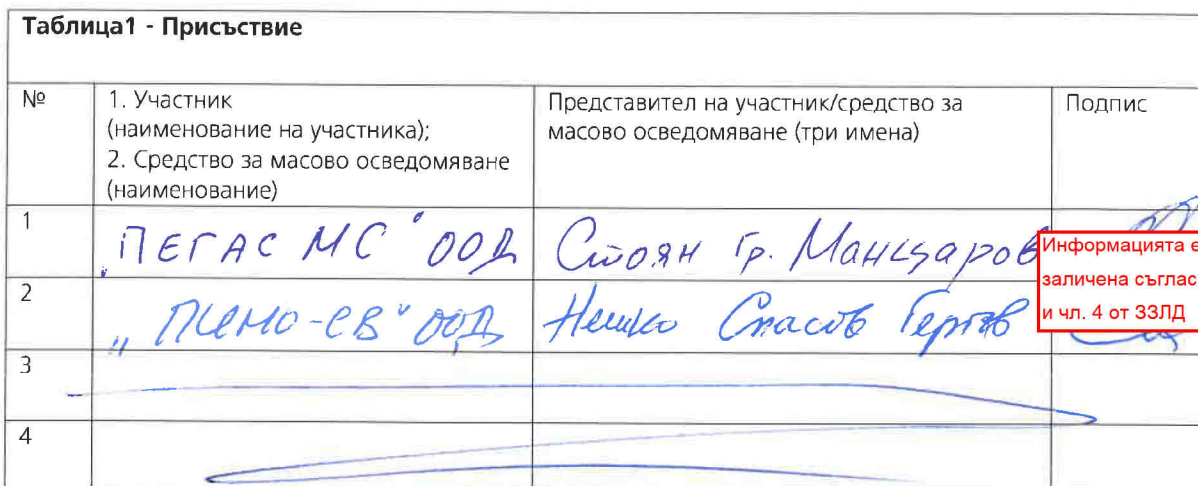 Таблица1 - Присъствие
№
1. Участник
(наименование на участника);
2. Средство за масово осведомяване
(наименование)
Представител на участник/средство за
масово осведомяване (три имена)
Подпис
1
„ПЕГАС МС" ООД
Стоян Гр. Манцаров
Информацията е
заличена съглас
и чл. 4 от ЗЗЛД
2
„ПИМО-СВ" ООД
Нешко Спасов
3
4